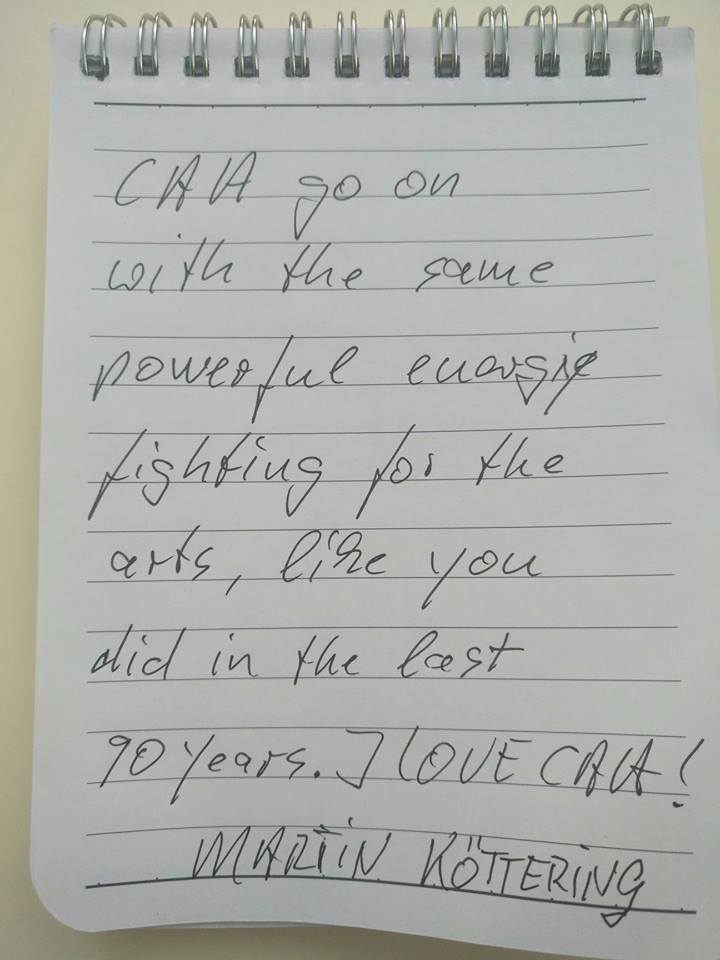 CAA go on
with the same
powerful energie
fighting for the
arts, like you
did in the last
90 years. I LOVE CAA!
MARTIN KÖTTERING